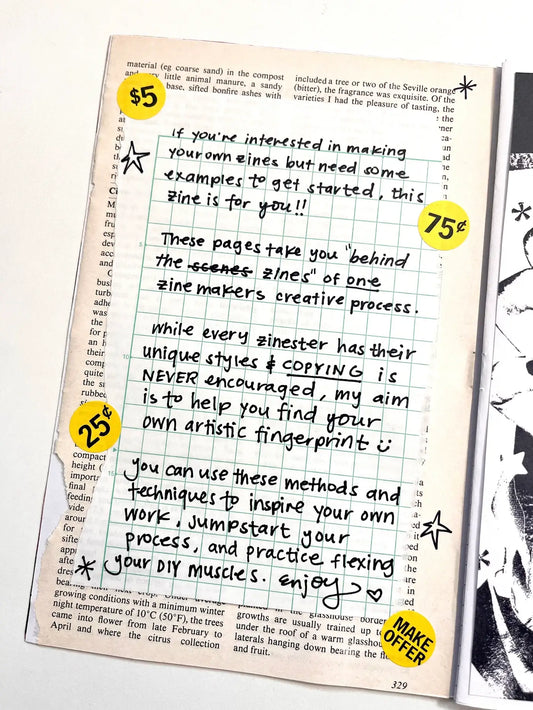 material (eg coarse sand) in the compost
little animal manure, a sandy
base, sifted bonfire ashes with
included a tree or two of the Seville orange
(bitter), the fragrance was exquisite. Of the
varieties I had the pleasure of tasting, the
$5
If you're interested in making
your own zines but need some
examples to get started, this
zine is for you!!
75¢
These pages take you "behind
the scenes zines" of one
zine makers creative process.
While every zinester has their
unique styles & COPYING is
NEVER encouraged, my aim
is to help you find your
own artistic fingerprint
25¢
you can use these methods and
techniques to inspire your own
work, jumpstart your
process, and practice flexing
your DIY muscles. enjoy
growing conditions with a minimum winter
night temperature of 10°C (50°F), the trees
came into flower from late February to
April and where the citrus collection
growths are usually trained up
under the roof of a warm glasshou
laterals hanging down bearing the
and fruit.
MAKE
OFFER
329